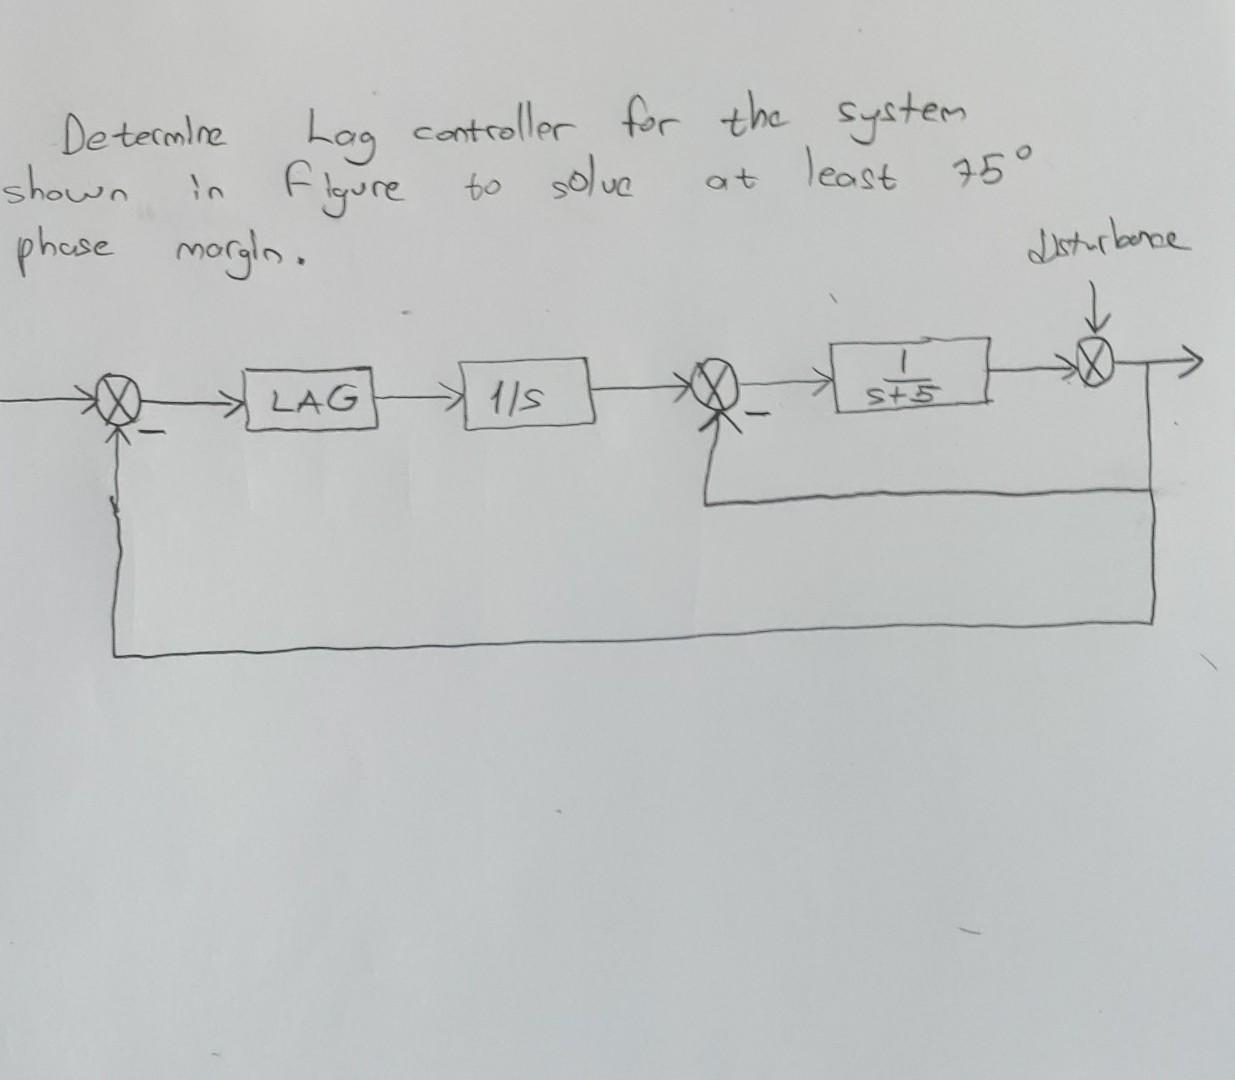 Determine Lag controller for the system
shown in figure to solve at least 75°
phase margin.
Disturbance
LAG
1/s
1
s+5
-
-